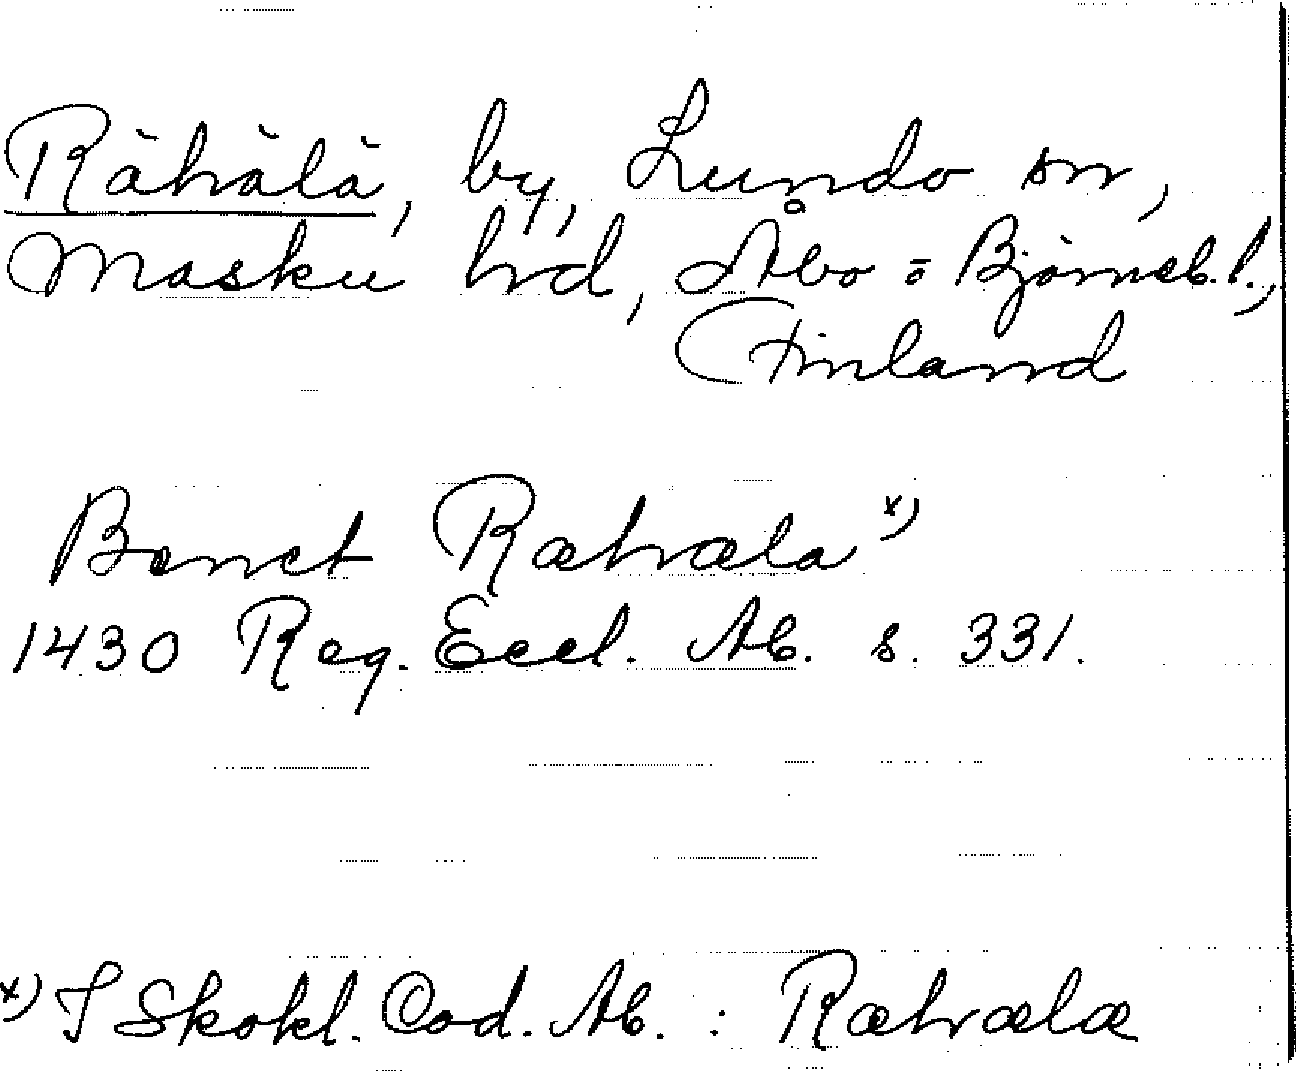 Rähälä, by, Lundo sn,
Masku hrd, Åbo = Björneb. l.,
Finland
Benct Ræhæla x)
1430 Reg. Eccl. Ab. s. 331.
x) I Skokl. Cod. Ab. : Ræhælæ